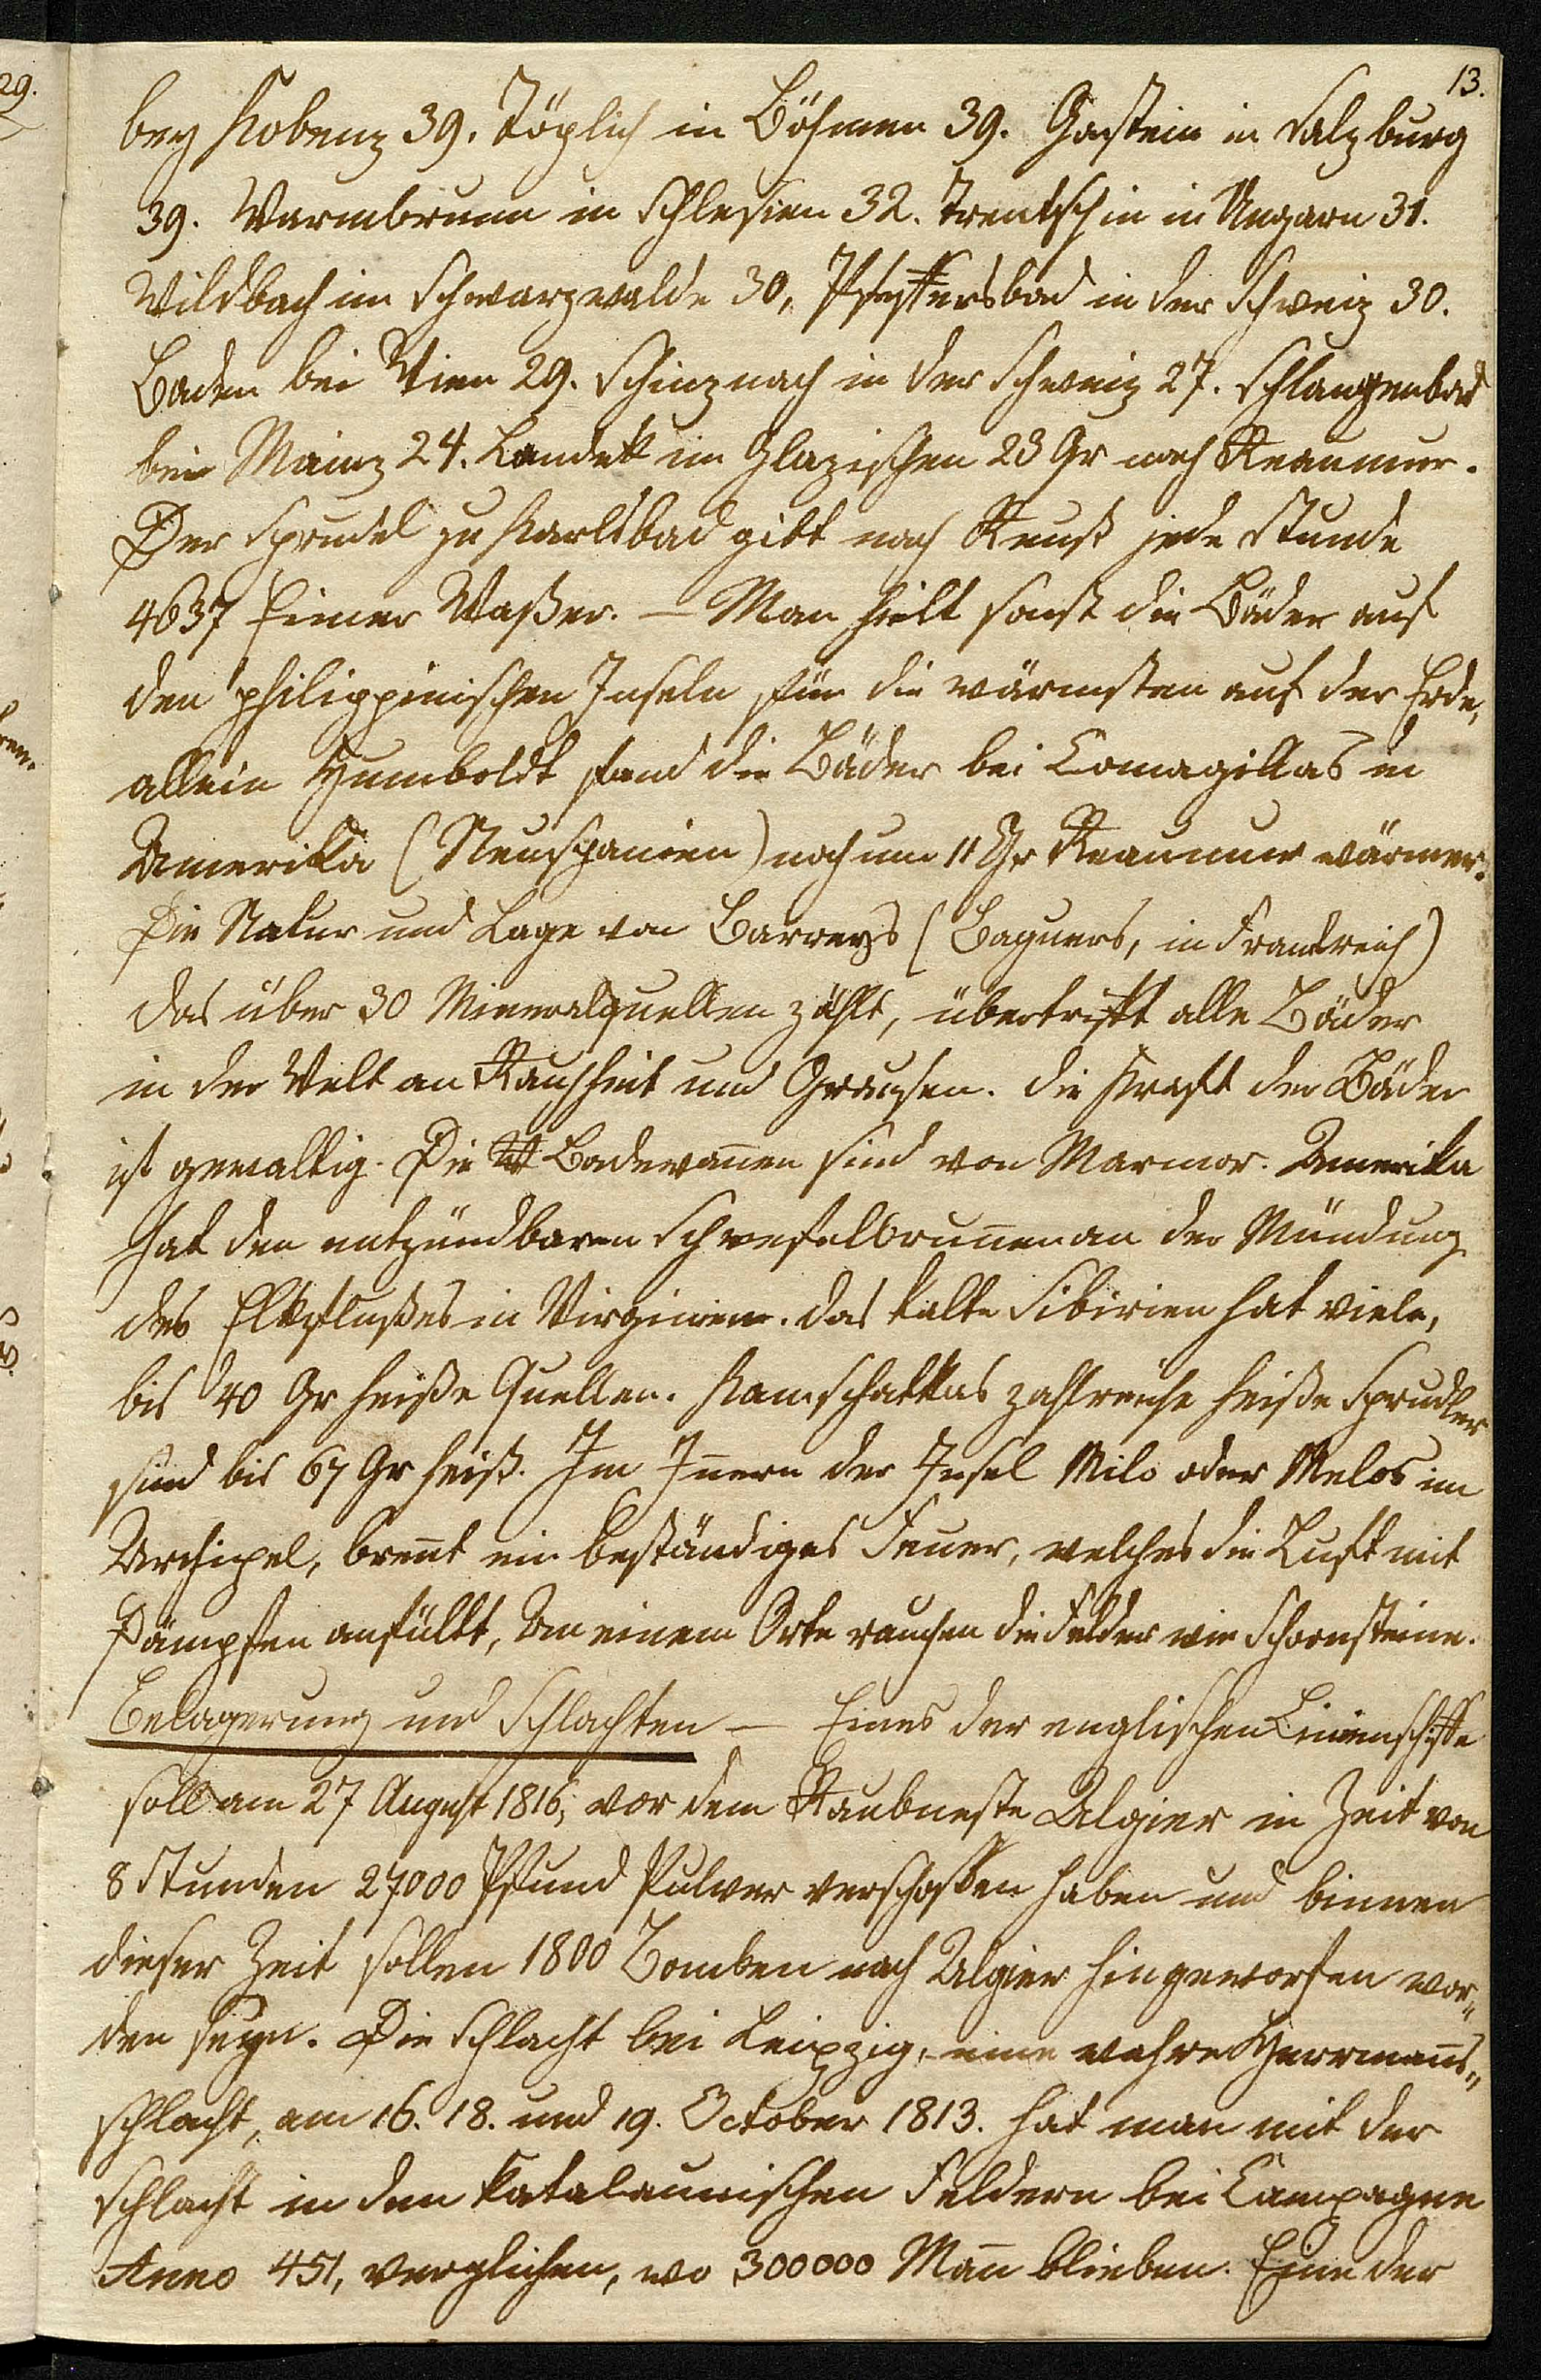 13.
bey Kobenz 39. Töplich in Böhmen 39. Gastein in Salzburg
39. Warmbrunn in Schlesien 32. Trentschin in Ungarn 31.
Wildbach im Schwarzwalde 30, Pfeffersbad in der Schweiz 30.
Baden bei Wien 29. Schinznach in der Schweiz 27. Schlangenbad
bei Mainz 24. Landek im Glazischen 23 Gr nach Reaumur.
Der Sprudel zu Karlsbad gibt nach Reuß jede Stunde
4637 Eimer Waßer. – Man hielt sonst die Bäder auf
den philippinischen Inseln für die wärmsten auf der Erde,
allein Humboldt fand die Bäder bei Comagillas in
Amerikka (Neuspanien) noch um 11 Gr Reaumur wärmer.
Die Natur und Lage von Barreys (Baguers, in Frankreich)
das über 30 Mineralquellen zählt, übertrifft alle Bäder
in der Welt an Rauhheit und Grausen. die Kraft der Bäder
ist gewaltig. Die Badewan̄en sind von Marmor. Amerikka
hat den entzündbaren Schwefelbrun̄en an der Mündung
des Elkflußes in Virginien. das kalte Sibirien hat viele,
bis 40 Gr heiße Quellen. Kamschattkas zahlreiche heiße Sprudler
sind bis 67 Gr heiß. Im In̄ern der Insel Milo oder Melos im
Archipel, bren̄t ein beständiges Feuer, welches die Luft mit
Dämpfen anfüllt, An einem Orte rauchen die Felder wie Schornsteine.
Belagerung und Schlachten – Eines der englischen Linienschiffe
soll am 27 August 1816, vor dem Raubneste Algier in Zeit von
8 Stunden 27000 Pfund Pulver verschossen haben und binnen
dieser Zeit sollen 1800 Bomben nach Algier hingeworfen wor„
den seyn. Die Schlacht bei Leipzig, eine wahre Herrman̄s„
schlacht, am 16. 18. und 19. October 1813. hat man mit der
Schlacht in den katalaunischen Feldern bei Campagne
Anno 451, verglichen, wo 300000 Man̄ blieben. Eine der